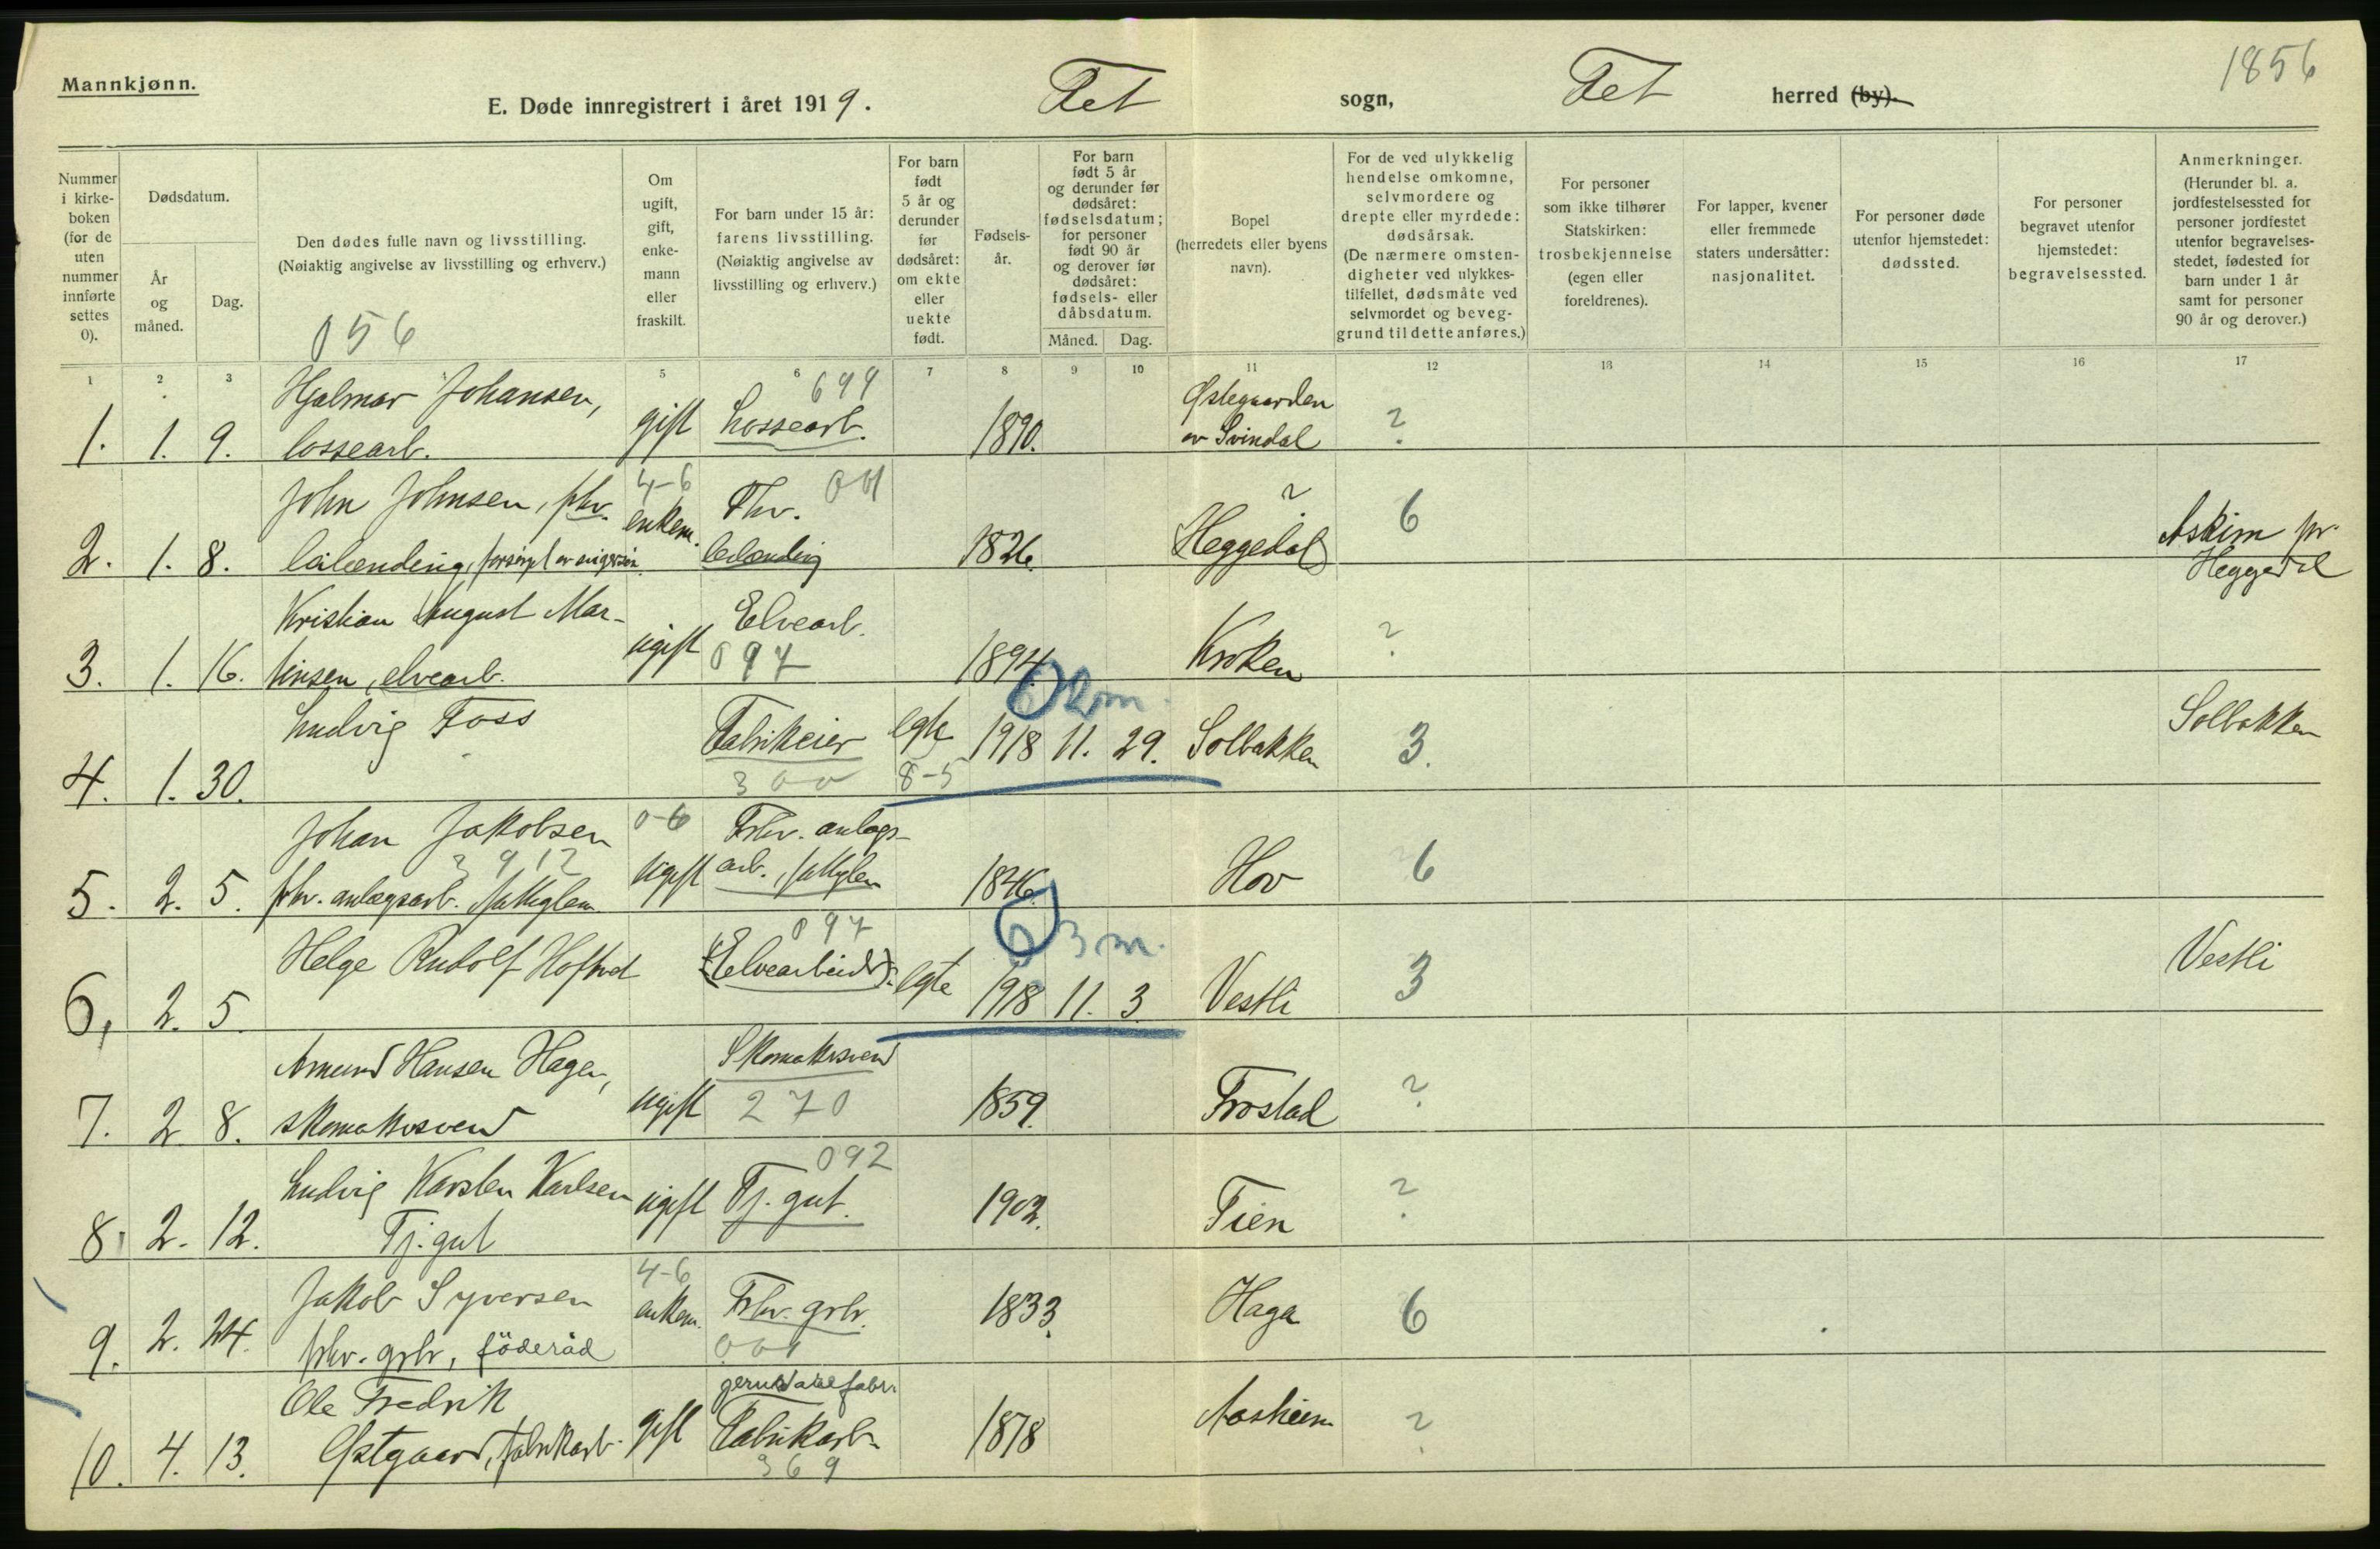 Mannkjønn.
E. Døde innregistrert i året 1919.
Fet sogn, Fet herred (by).
1856
Nummer i kirke-boken (for de uten nummer innførte settes 0).
Dødsdatum.
År og måned.
Dag.
Den dødes fulle navn og livsstilling.
(Nøiaktig angivelse av livsstilling og erhverv.)
056
Om ugift, gift, enke-mann eller fraskilt.
For barn under 15 år: farens livsstilling.
(Nøiaktig angivelse av livsstilling og erhverv.)
For barn født 5 år og derunder før dødsåret: om ekte eller uekte født.
Fødsels-år.
For barn født 5 år og derunder før dødsåret: fødselsdatum; for personer født 90 år og derover før dødsåret: fødsels- eller dåbsdatum.
Måned. Dag.
Bopel (herredets eller byens navn).
For de ved ulykkelig hendelse omkomne, selvmordere og drepte eller myrdede: dødsårsak.
(De nærmere omsten-digheter ved ulykkes-tilfellet, dødsmåte ved selvmordet og beveg-grund til dette anføres.)
For personer som ikke tilhører Statskirken: trosbekjennelse (egen eller foreldrenes).
For lapper, kvener eller fremmede staters undersåtter: nasjonalitet.
For personer døde utenfor hjemstedet: dødssted.
For personer begravet utenfor hjemstedet: begravelsessted.
Anmerkninger.
(Herunder bl. a. jordfestelsessted for personer jordfestet utenfor begravelses-stedet, fødested for barn under 1 år samt for personer 90 år og derover.)
1 2 3 4 5 6 7 8 9 10 11 12 13 14 15 16 17
Hjalmar Johansen, 699 Østegaarden
1. 1. 9. lossearb. gift Lossearb. 1890. av Svindal ?
John Johnsen, fhv. 4-6 Fhv. 001 ?
2. 1. 8. leilænding, forsørget av enkem. leilænding 1826. Heggedal 6 Askim pr. Heggedal
Kristian August Mar- Elvearb.
3. 1. 16. tinsen, elvearb. ugift 097 1894. Kroken ?
0 2 m.
Ludvig Foss Fabrikeier egte 1918 11. 29. Solbakken 3. Solbakken
4. 1. 30. 300 8-5
Johan Jakobsen 0-6 Fhv. anlægs-
3912
5. 2. 5. fhv. anlægsarb. fattiglem. ugift arb., fattiglem 1846. Hov 6
097 0 3 m.
Helge Rudolf Hofstad (Elvearbeider). egte Vestli
6. 2. 5. 1918 11. 3. Vestli 3
Amund Hansen Hagen, Skomakersvend
7. 2 8. skomakersvend ugift 270 1859. Frostad ?
092
Ludvig Karsten Karlsen ugift Tj. gut.
8. 2. 12. Tj. gut 1902. Tien ?
Jakob Syversen 4-6 enkem. Fhv. grbr. 1833. Haga 6
9. 2. 24. fhv. grbr, föderåd 001
Ole Fredrik
10. 4. 13. Østgaard, fabrikarb. gift Fabrikarb. 1878 Aasheim ?
369